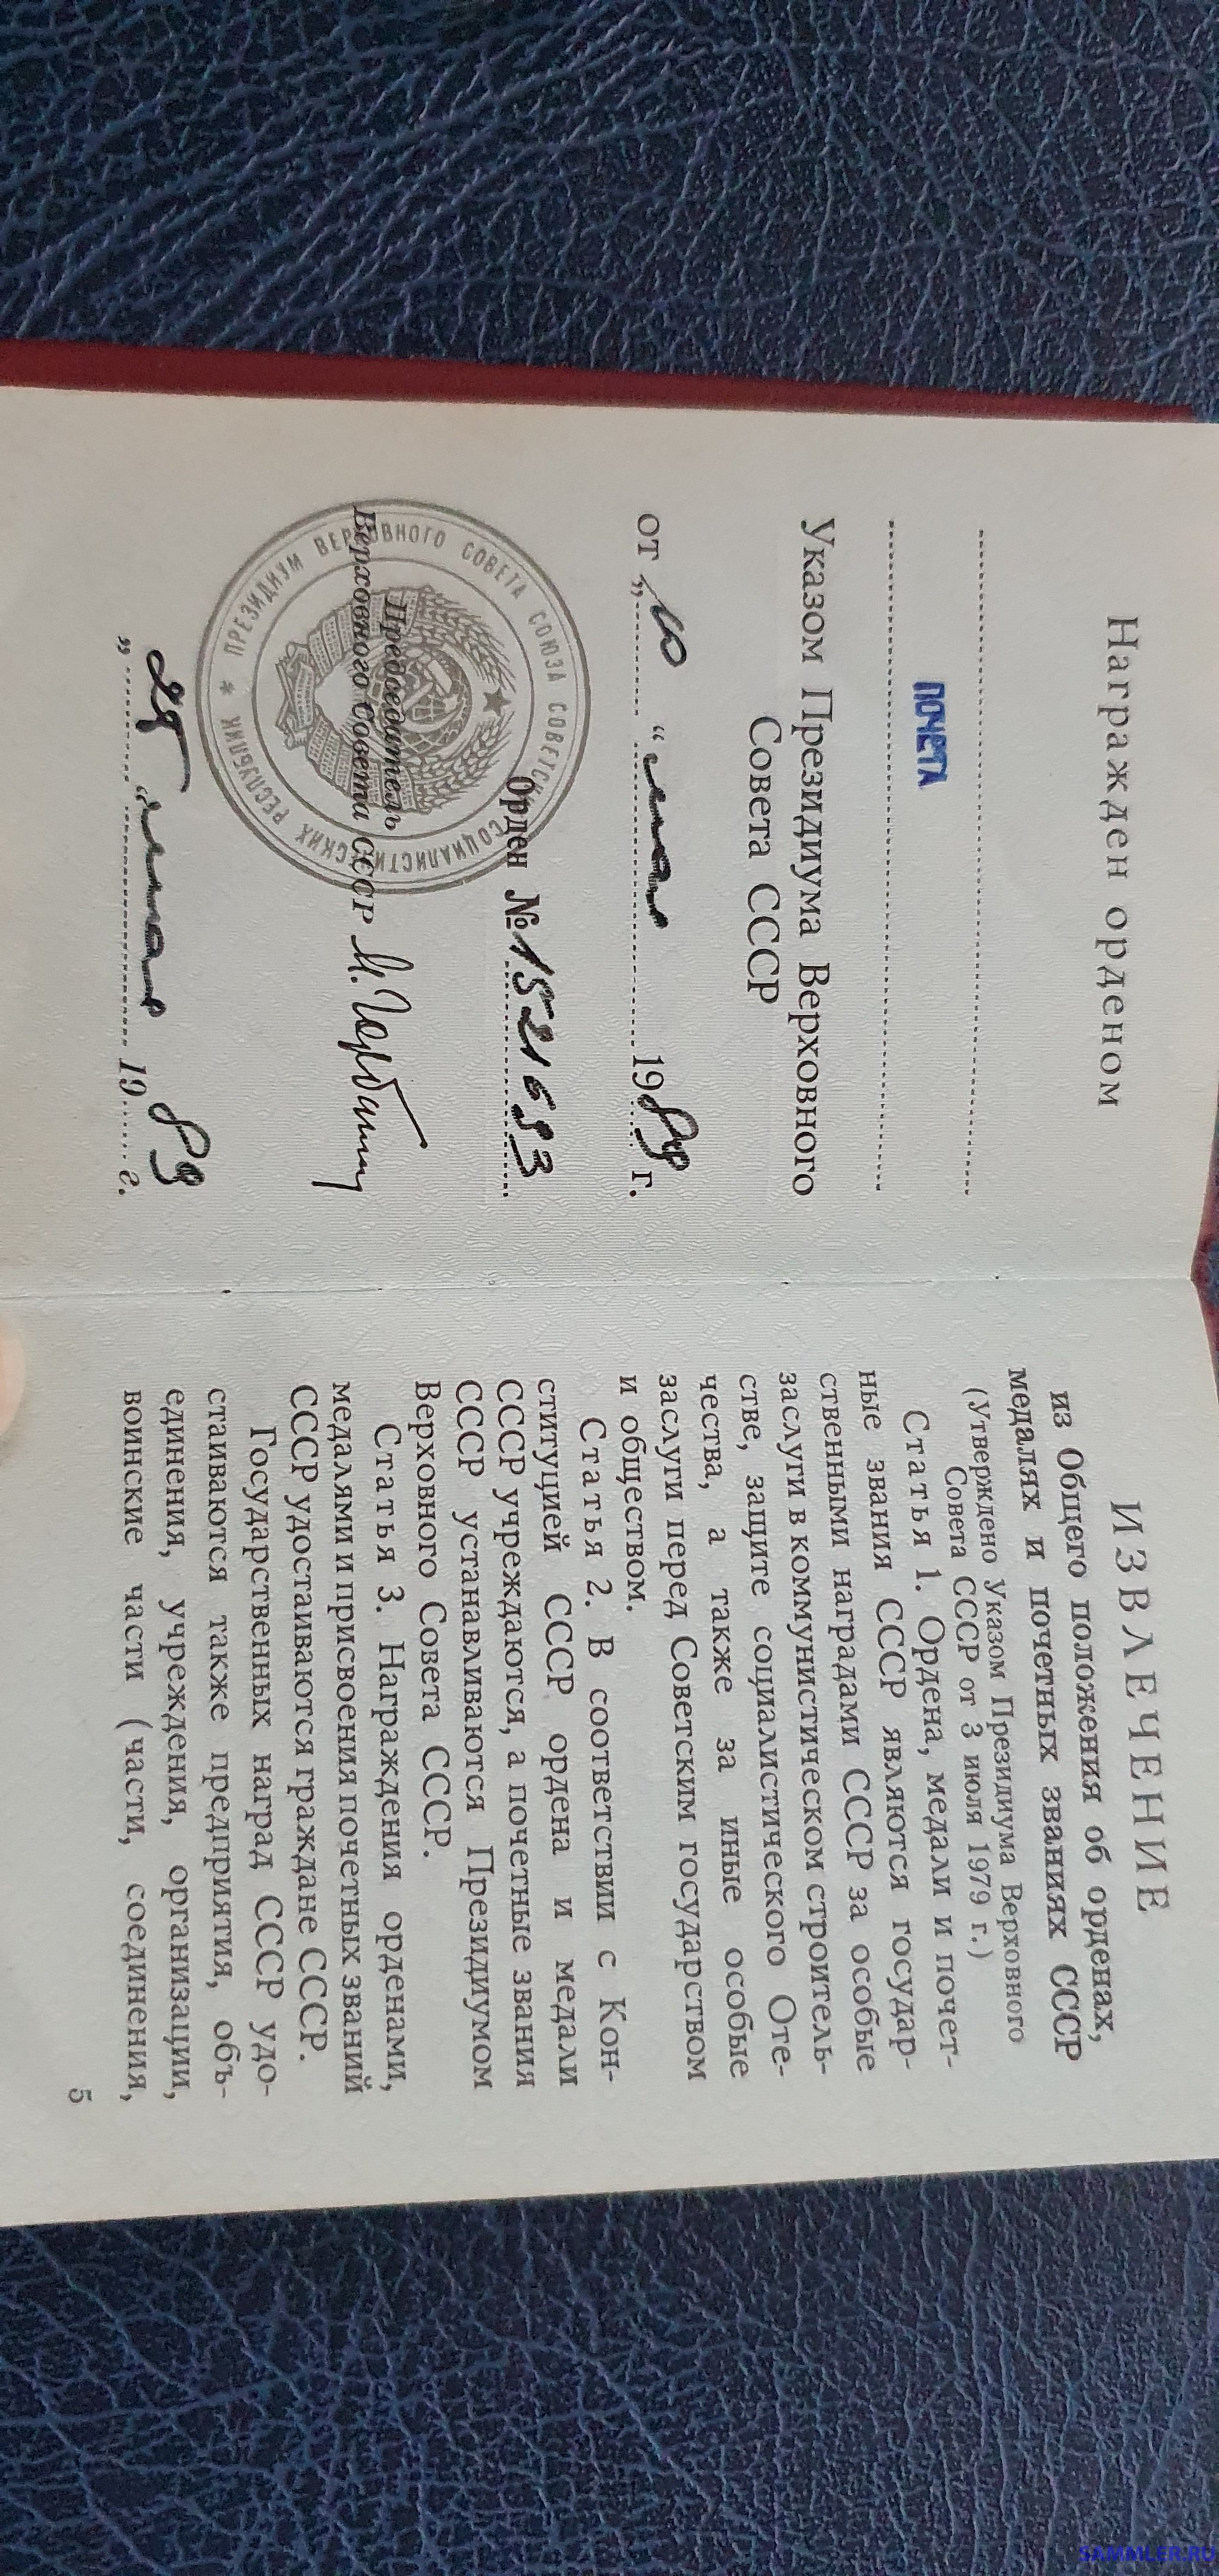 Награжден орденом
ПОЧЕТА
Указом Президиума Верховного
Совета СССР
от „10“ мая 1989 г.
Орден № 1521633
Председатель
Верховного Совета СССР М. Горбачев
ПРЕЗИДИУМ ВЕРХОВНОГО СОВЕТА СОЮЗА СОВЕТСКИХ СОЦИАЛИСТИЧЕСКИХ РЕСПУБЛИК *
„25“ мая 1989 г.
ИЗВЛЕЧЕНИЕ
из Общего положения об орденах,
медалях и почетных званиях СССР
(Утверждено Указом Президиума Верховного
Совета СССР от 3 июля 1979 г.)
Статья 1. Ордена, медали и почет-
ные звания СССР являются государ-
ственными наградами СССР за особые
заслуги в коммунистическом строитель-
стве, защите социалистического Оте-
чества, а также за иные особые
заслуги перед Советским государством
и обществом.
Статья 2. В соответствии с Кон-
ституцией СССР ордена и медали
СССР учреждаются, а почетные звания
СССР устанавливаются Президиумом
Верховного Совета СССР.
Статья 3. Награждения орденами,
медалями и присвоения почетных званий
СССР удостаиваются граждане СССР.
Государственных наград СССР удо-
стаиваются также предприятия, объ-
единения, учреждения, организации,
воинские части (части, соединения,
5
SAMMLER.RU